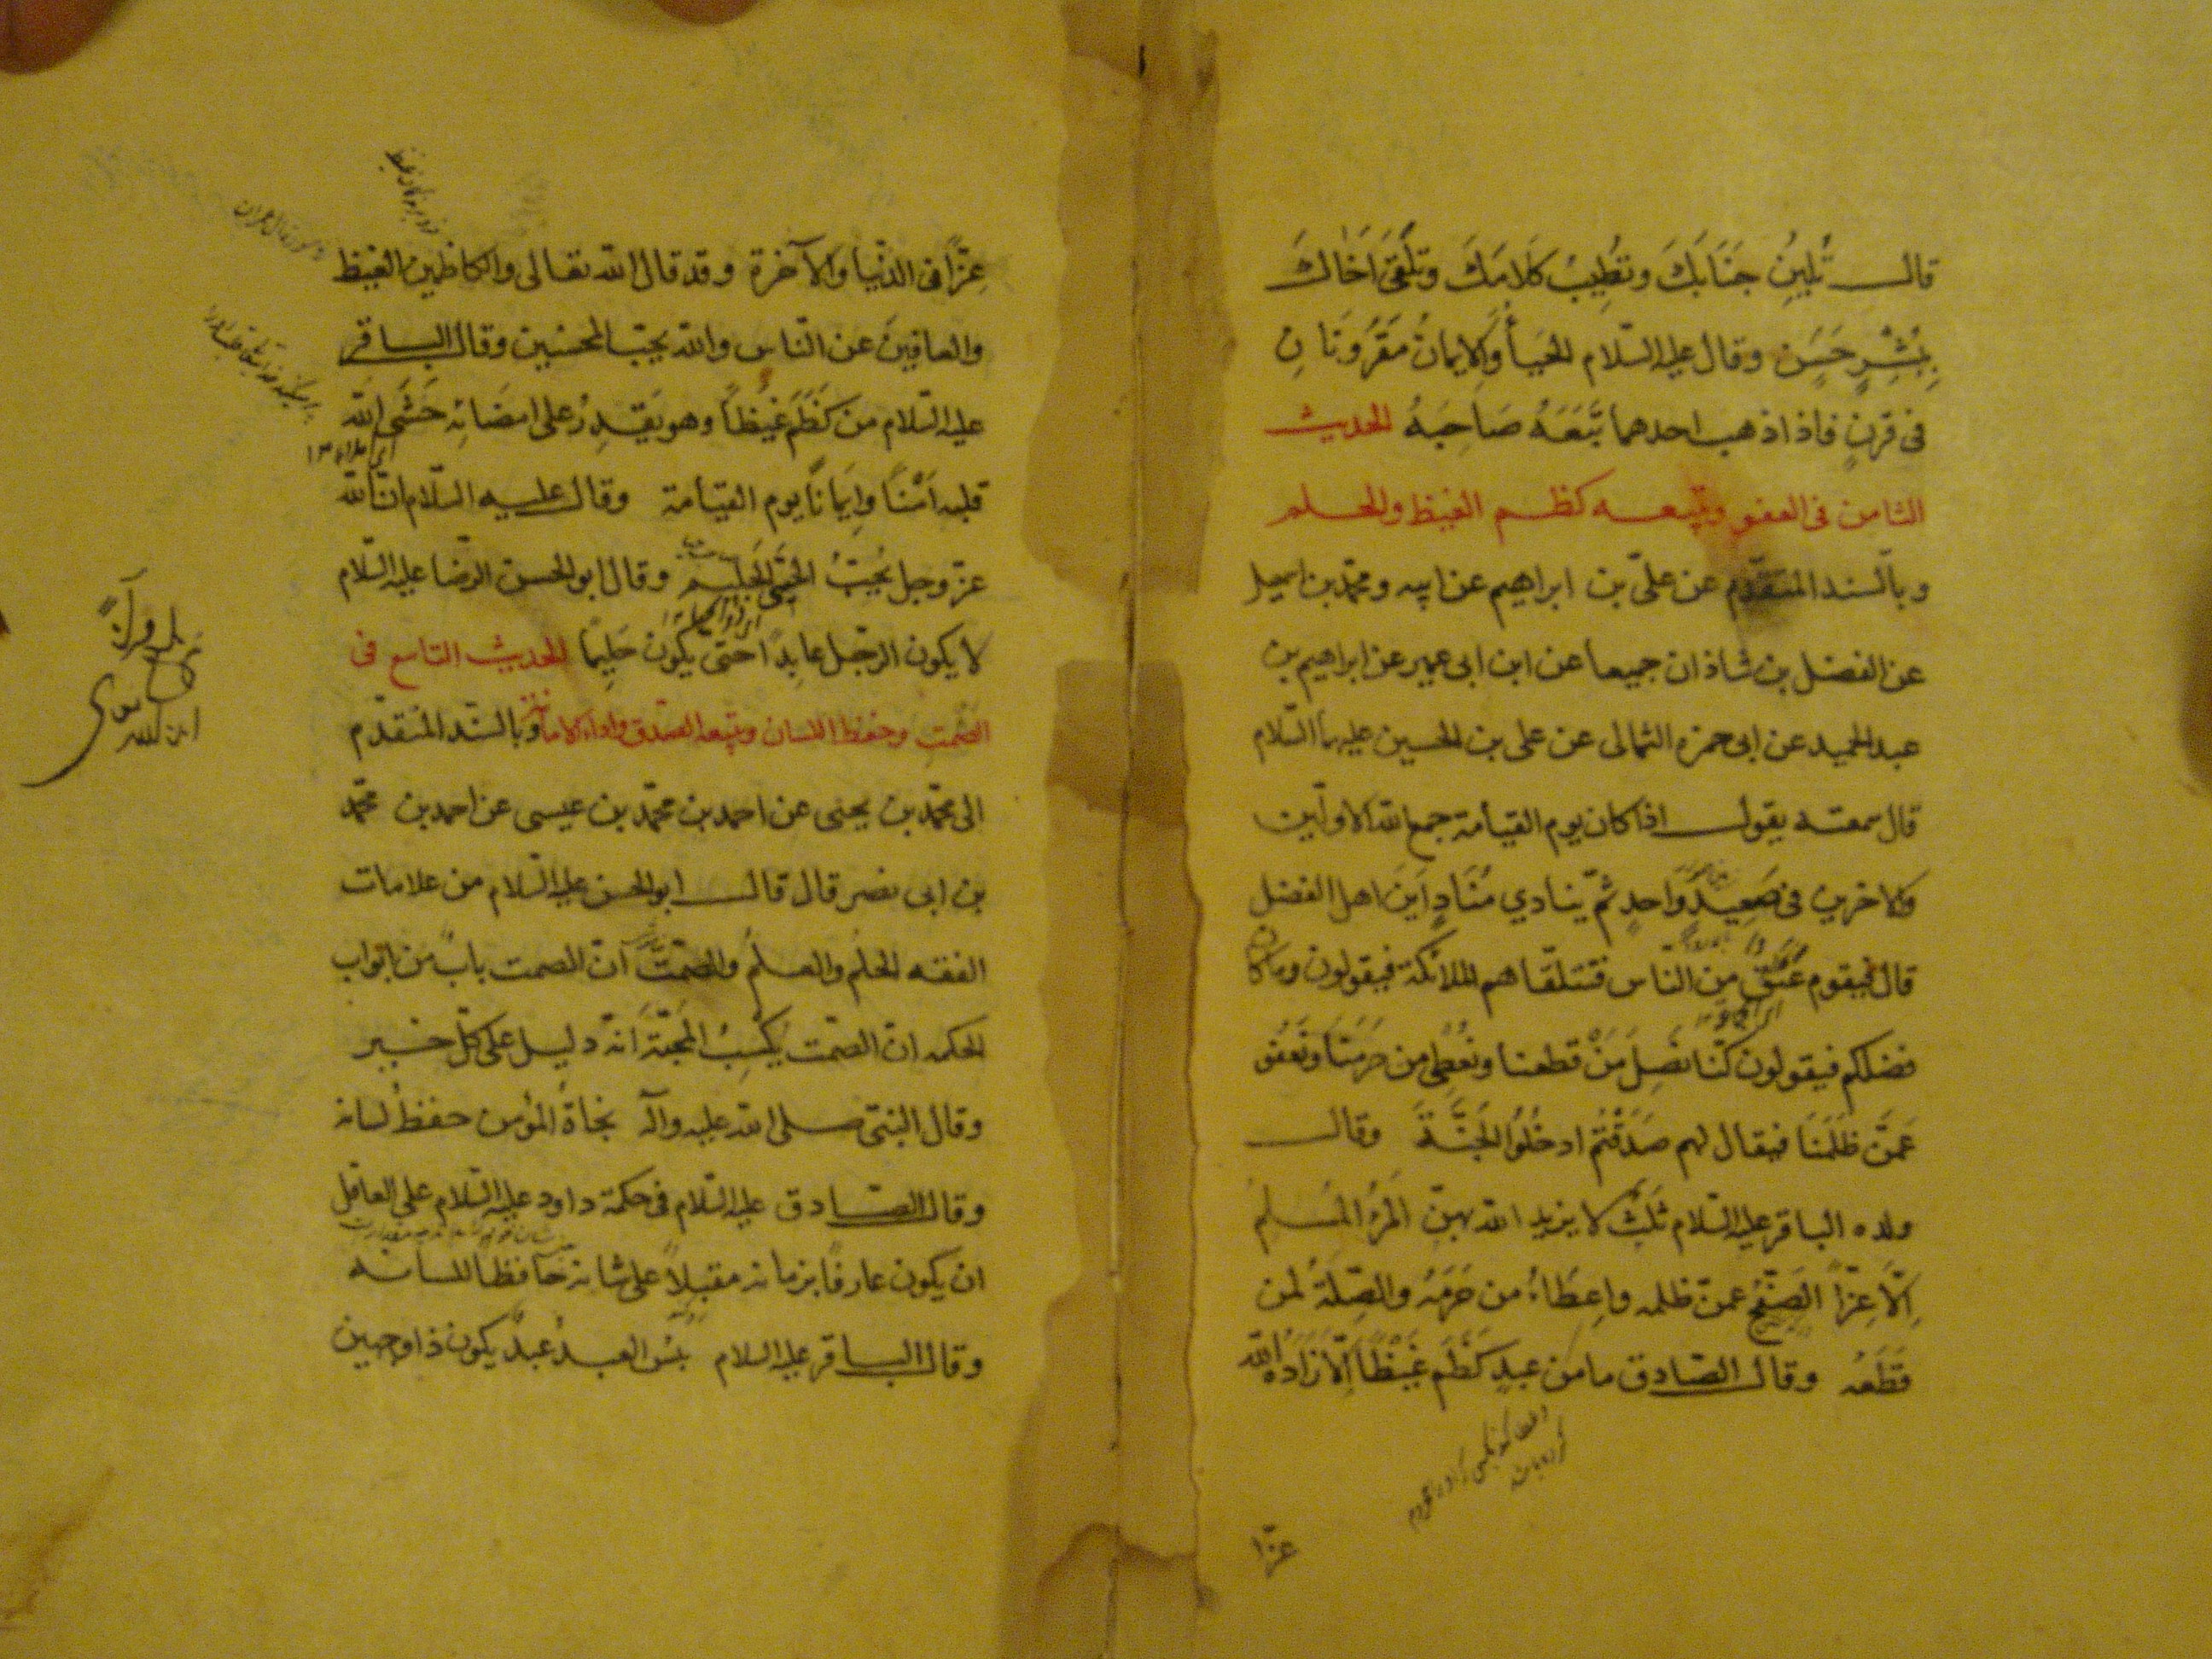 قال تُلِينُ جَنَابَكَ وتُطِيبُ كَلَامَكَ وتَلْقَى اَخَاكَ
بِبِشْرٍ حَسَنٍ وقال عليه السّلام الحَيَاءُ والايمانُ مَقْرُونَانِ
فى قَرَنٍ فاذا ذهب احدهما تَبِعَهُ صَاحِبَهُ الحديث
الثامن فى العفو ويتبعه كظم الغيظ والحلم
وبالسند المتقدّم عن علىّ بن ابراهيم عن ابيه ومحمّد بن اسمعيل
عن الفضل بن شاذان جميعا عن ابن ابى عمير عن ابراهيم بن
عبد الحميد عن ابى حمزه الثمالى عن على بن الحسين عليهما السّلام
قال سمعته يقول اذا كان يوم القيامة جمع الله الاولين
والاخرين فى صَعِيدٍ وَاحدٍ ثمّ ينادي مُنَادٍ اَينَ اهل الفضل
قال فيقوم عُنُقٌ من النّاس فتتلقّاهم الملائكة فيقولون وما كان
فضلكم فيقولون كُنّا نَصِلُ مَنْ قطعنا ونُعْطِى من حَرَمَنَا ونَعْفُو
عَمَّن ظَلَمَنَا فيقال لهم صَدَقْتُم ادخُلُوا الجَنَّةَ وقال
ولده الباقر عليه السّلام ثلث لا يزيد الله بهنّ المَرْءَ المُسلمَ
اِلّا عِزّاً الصَّفْحُ عمّن ظلمه واِعطَاءُ من حَرَمَهُ والصِّلَةُ لمن
قَطَعَهُ وقال الصّادق ما من عبدٍ كَظَمَ غَيْظاً اِلّا زَادَهُ اللّه
عزّا
عِزّاً فى الدّنيا والآخرة وقد قال الله تعالى والكاظمين الغيظ
والعافِينَ عن النّاس والله يحبّ المحسنين وقال الباقر
عليه السّلام من كَظَمَ غَيْظاً وهو يَقْدِرُ على امضَائِه حَشَى الله
قلبه اَمْنًا واِيمَانًا يوم القيامة وقال عليه السّلام انّ الله
عزّ وجل يُحِبُّ الحَيِىَّ الحَلِيمَ وقال ابو الحسن الرّضا عليه السّلام
لا يكون الرّجل عابِدًا حتى يكُون حَلِيمًا الحديث التاسع فى
الصَّمتِ وحفظ اللسان ويتبعه الصدق واداء الامانة وبالسّند المتقدّم
الى محمّد بن يحيى عن احمد بن محمّد بن عيسى عن احمد بن محمّد
بن ابى نصر قال قال ابو الحسن عليه السّلام من علامات
الفقه الحلمُ والعلمُ والصّمتُ انّ الصمت بابٌ من ابواب
الحكمه انّ الصّمت يَكْسِبُ المحبّةَ انّه دليل على كلّ خير
وقال النبىّ صلى الله عليه وآله نجاةُ المؤمن حفظُ لسانه
وقال الصّادق عليه السّلام فى حكمة داود عليه السّلام على العاقل
ان يكون عارفًا بزمانه مقبلاً على شانه حافظا للسانه
وقال الباقر عليه السلام بئس العبدُ عبدٌ يكون ذا وجهين